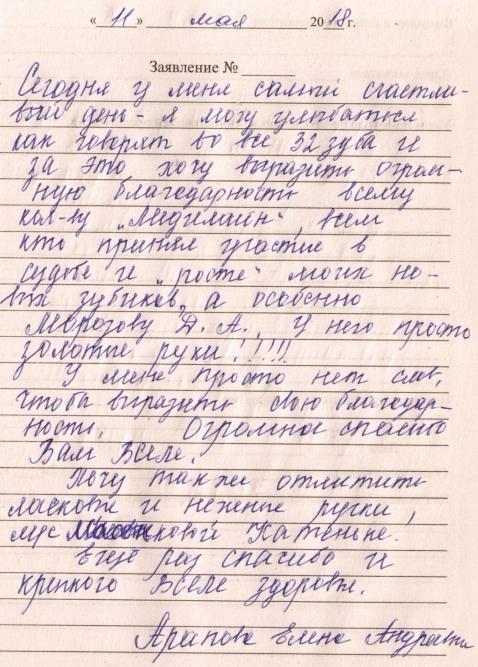 « 11 » мая 2018 г.
Заявление № ______
Сегодня у меня самый счастли-
вый день - я могу улыбаться
как говорят во все 32 зуба и
за это хочу выразить огром-
ную благодарность всему
кол-ву „Медилайн“, всем
кто принял участие в
судьбе и „росте“ моих но-
вых зубиков, а особенно
Морозову Д. А., У него просто
золотые руки!!!!!
У меня просто нет слов,
чтобы выразить свою благодар-
ность. Огромное спасибо
Вам Всем.
Хочу также отметить
ласковые и нежные ручки,
Катеньке.
Еще раз спасибо и
крепкого Всем здоровья.
Арапова Елена Андреевна